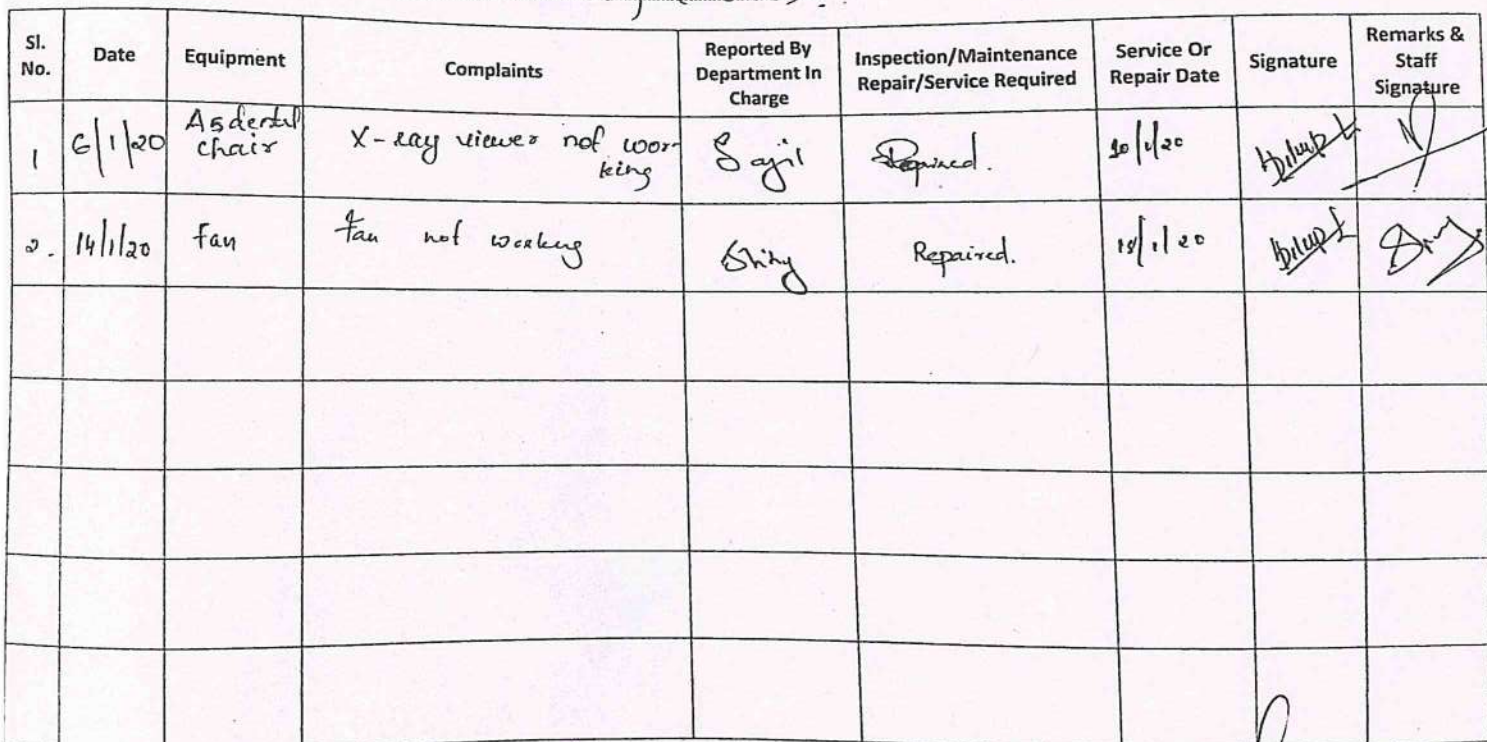 Sl. No. Date Equipment Complaints Reported By Department In Charge Inspection/Maintenance Repair/Service Required Service Or Repair Date Signature Remarks & Staff Signature
1 6/1/20 A5 dental chair X-ray viewer not wor-king Sajil Repaired. 10/1/20
2. 14/1/20 fan fan not working Shiny Repaired. 15/1/20